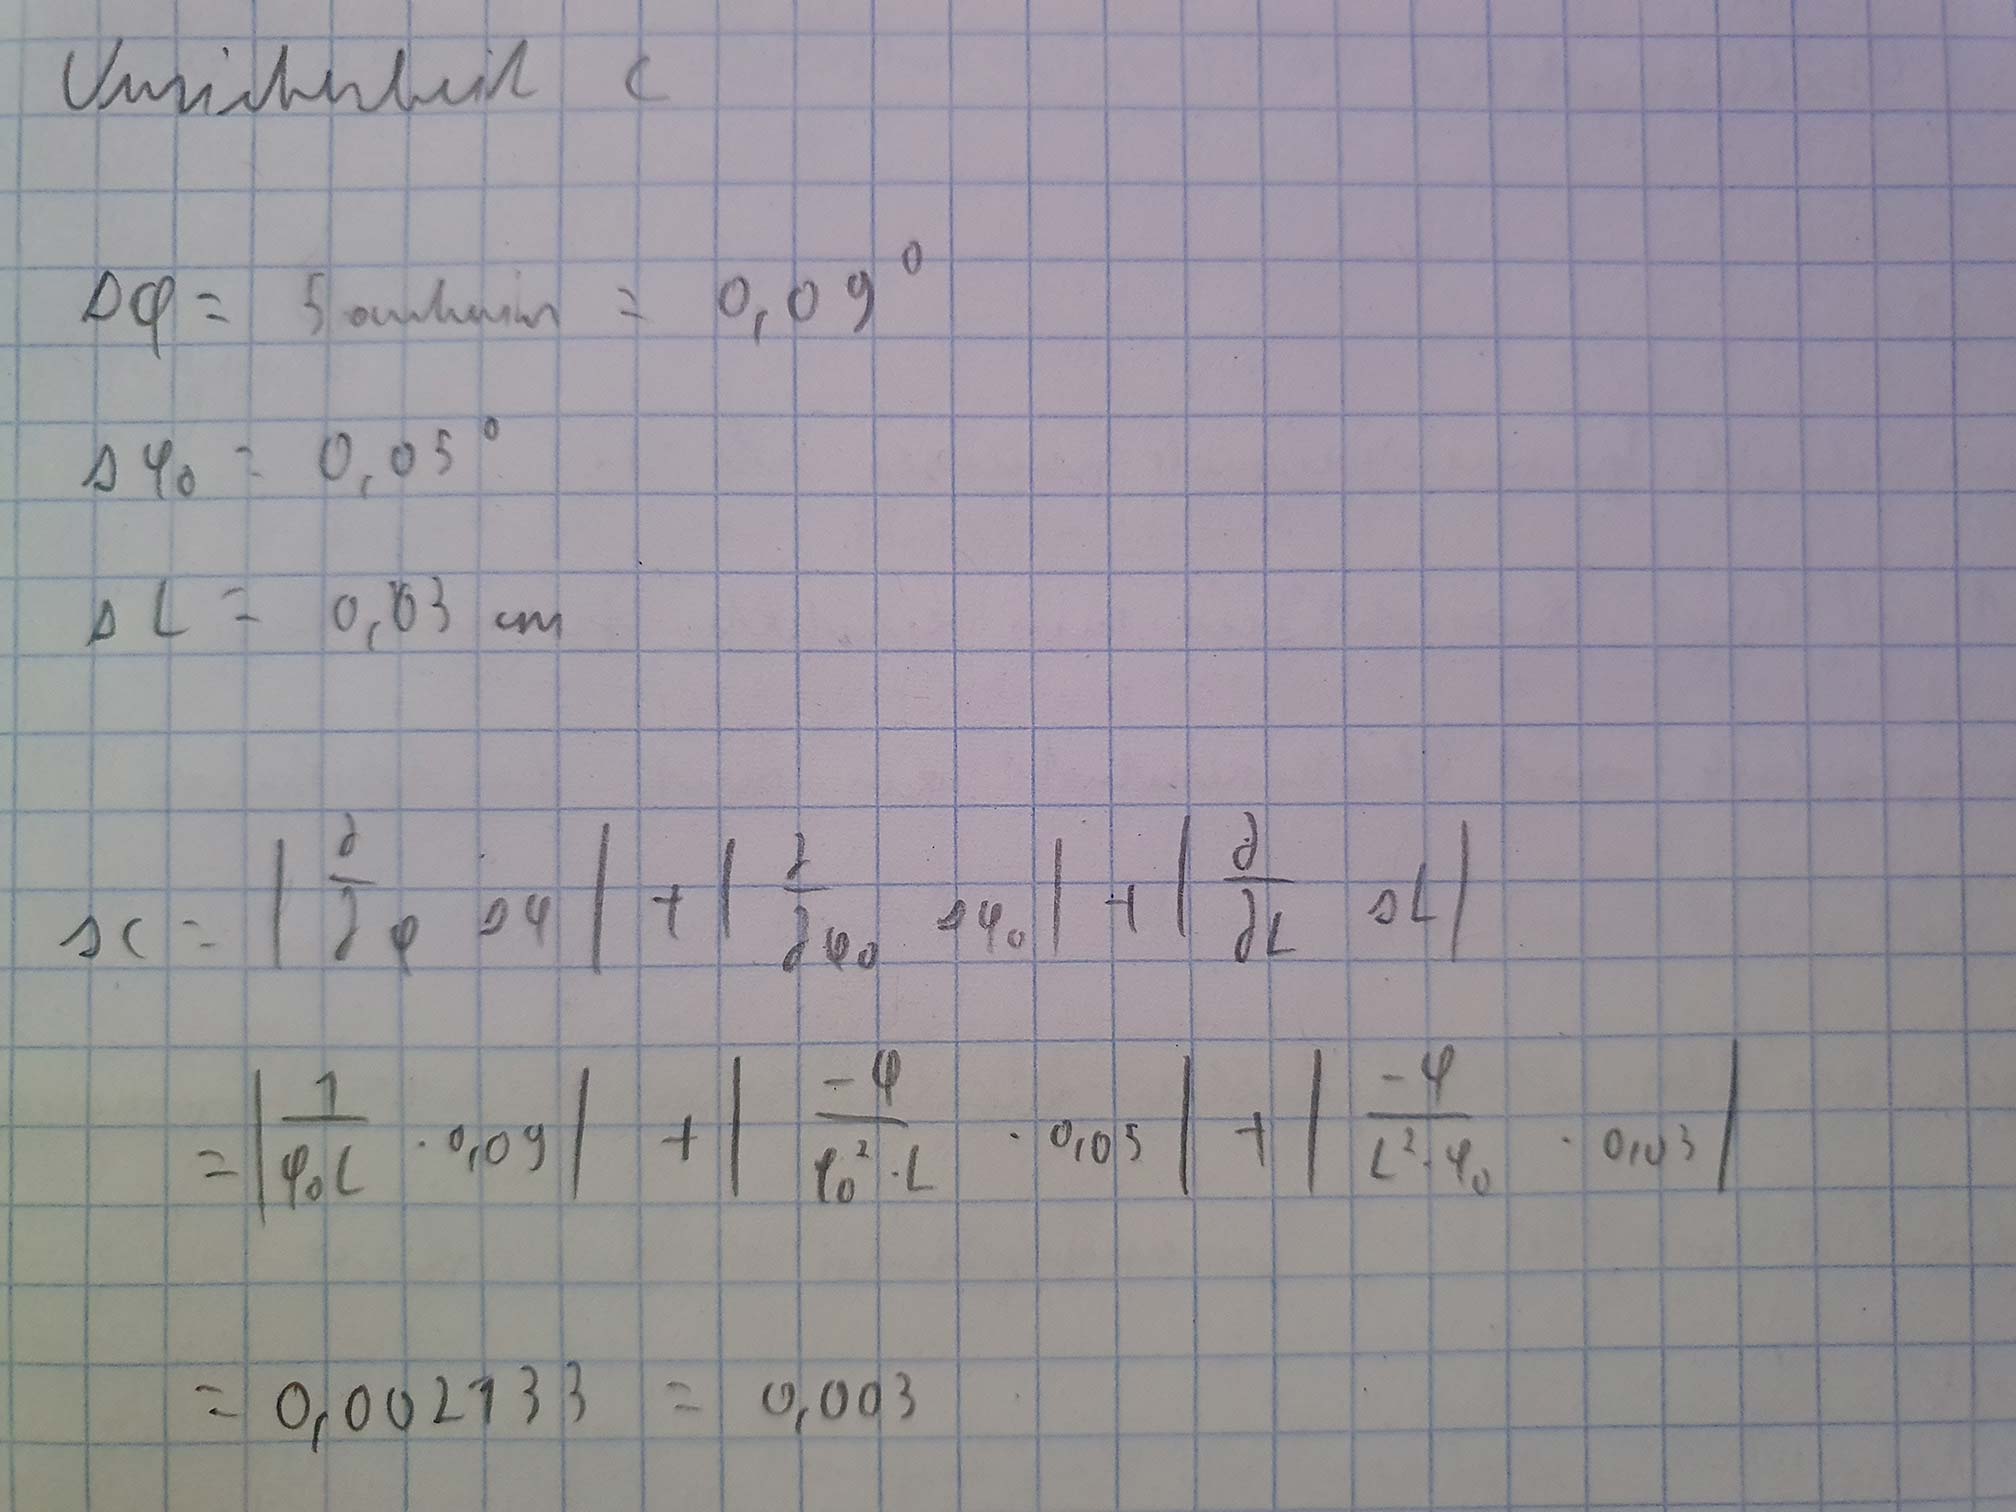 Unsicherheit c
Δφ = 5 arcmin = 0,09°
Δφ₀ = 0,05°
ΔL = 0,03 cm
Δc = |∂/∂φ Δφ| + |∂/∂φ₀ Δφ₀| + |∂/∂L ΔL|
= |1/(φ₀L) · 0,09| + |-φ/(φ₀² · L) · 0,05| + |-φ/(L² · φ₀) · 0,03|
= 0,002133 = 0,003